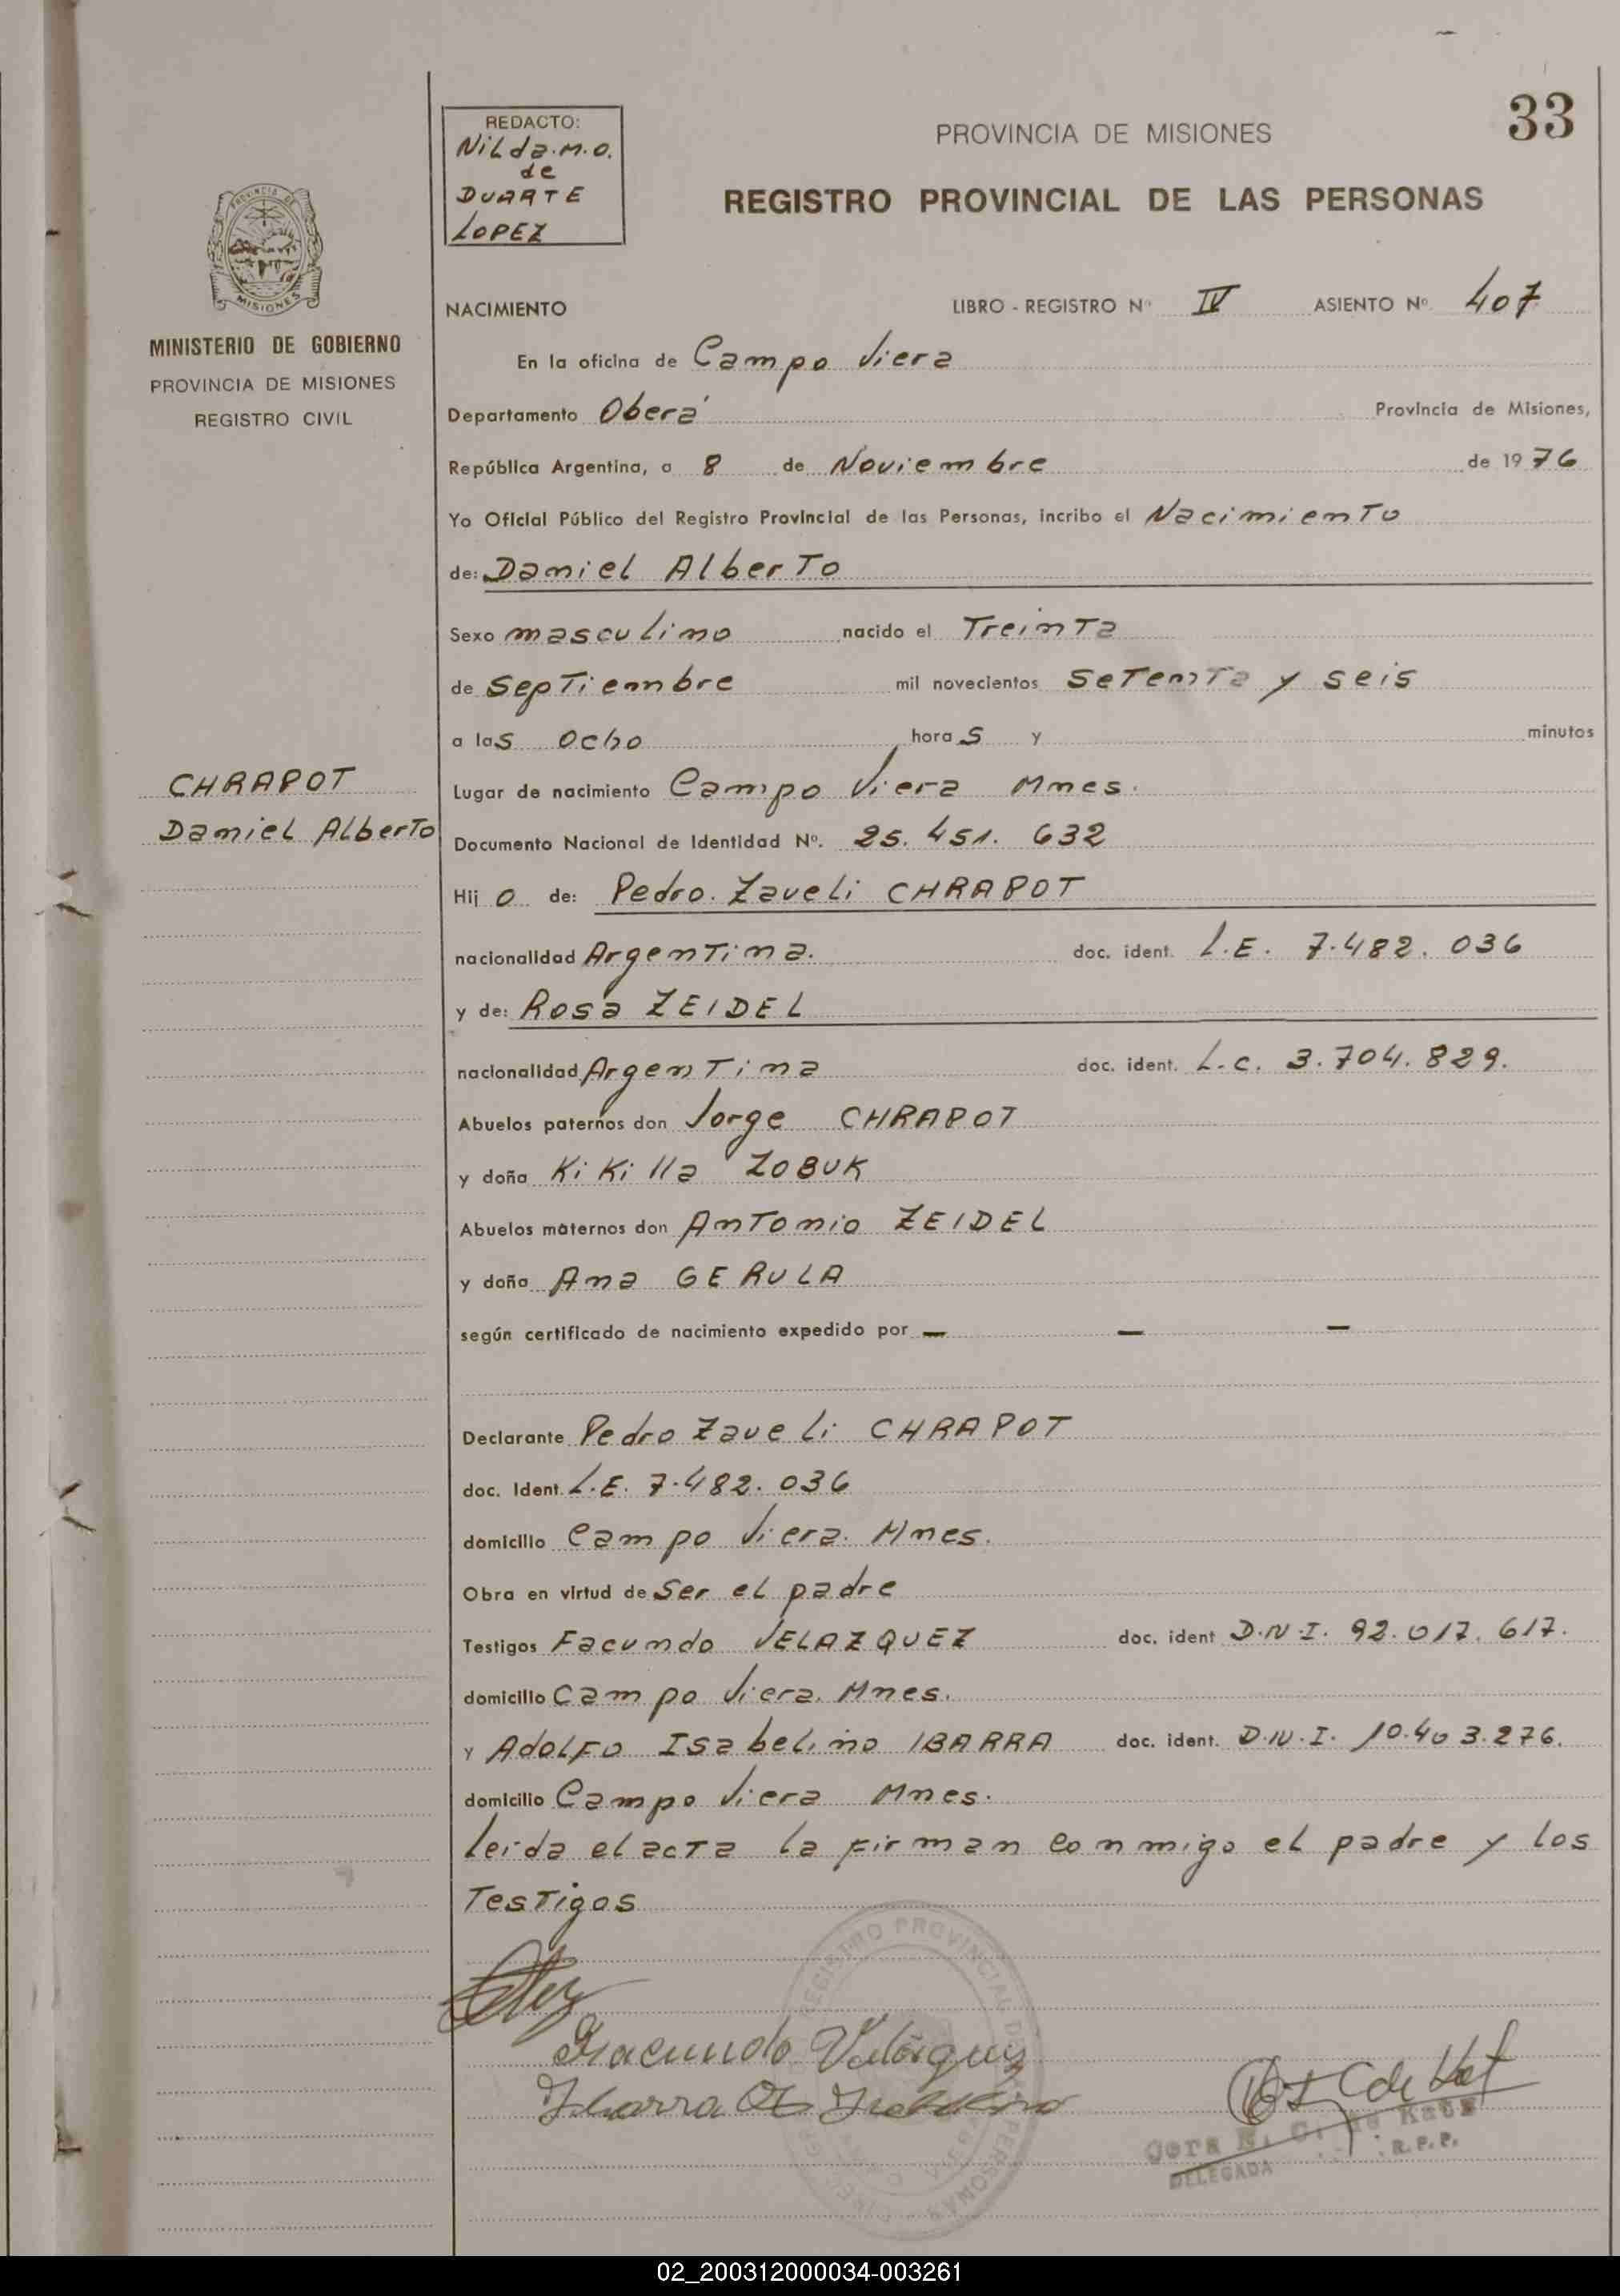 33
REDACTO:
Nilda.M.O.
de
DUARTE
LOPEZ
PROVINCIA DE MISIONES
REGISTRO PROVINCIAL DE LAS PERSONAS
PROVINCIA DE
MISIONES
MINISTERIO DE GOBIERNO
PROVINCIA DE MISIONES
REGISTRO CIVIL
NACIMIENTO LIBRO - REGISTRO Nº IV ASIENTO Nº 407
En la oficina de Campo Viera
Departamento Oberá Provincia de Misiones,
República Argentina, a 8 de Noviembre de 1976
Yo Oficial Público del Registro Provincial de las Personas, incribo el Nacimiento
de: Daniel Alberto
Sexo masculino nacido el Treinta
de Septiembre mil novecientos setenta y seis
a las ocho horas y minutos
CHRAPOT
Daniel Alberto
Lugar de nacimiento Campo Viera Mnes.
Documento Nacional de Identidad Nº. 25.451.632
Hijo de: Pedro. Zaveli CHRAPOT
nacionalidad Argentina. doc. ident. L.E. 7.482.036
y de: Rosa ZEIDEL
nacionalidad Argentina doc. ident. L.C. 3.704.829.
Abuelos paternos don Jorge CHRAPOT
y doña Kikilla ZOBUK
Abuelos maternos don Antonio ZEIDEL
y doña Ana GERULA
según certificado de nacimiento expedido por — — —
Declarante Pedro Zaveli CHRAPOT
doc. Ident. L.E. 7.482.036
domicilio Campo Viera. Mnes.
Obra en virtud de ser el padre
Testigos Facundo VELAZQUEZ doc. ident D.N.I. 92.017.617.
domicilio Campo Viera. Mnes.
y Adolfo Isabelino IBARRA doc. ident. D.N.I. 10.403.276.
domicilio Campo Viera Mnes.
leida el acta la firman conmigo el padre y los
Testigos
REGISTRO PROVINCIAL DE LAS PERSONAS
Facundo Velásquez
Ibarra
DELEGADA R.P.P.
02_200312000034-003261